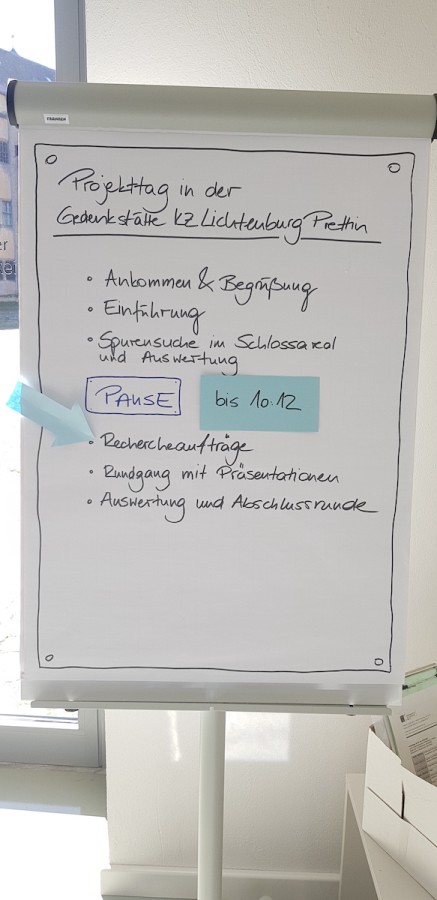 Projekttag in der
Gedenkstätte KZ Lichtenburg Prettin
• Ankommen & Begrüßung
• Einführung
• Spurensuche im Schlossareal
und Auswertung
PAUSE bis 10:12
• Rechercheaufträge
• Rundgang mit Präsentationen
• Auswertung und Abschlussrunde